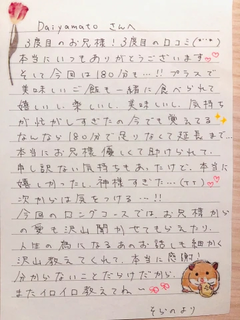 Daiyamato さんへ
3度目のお兄様！3度目の口コミ(**)
本当にいつもありがとうございます
そして今回は180分も…!! プラスで
美味しいご飯も一緒に食べられて
嬉しいし、楽しいし、美味しいし、気持ち
が代がしすぎたの今でも覚えてる
なんなら180分で足りなくて延長まで…
本当にお兄様優しくて助けられて、
申し訳ない気持ちもあったけど、本当に
嬉しかったし、神様すぎた…(TT)
次からは気をつける…!!
今回のロングコースでは、お兄様から
の愛も沢山聞かせてもらえたり、
人生の為になるあのお話しも細かく
沢山教えてくれて、本当に感謝!
分からないことだらけだから、
またイロイロ教えてね〜
そらのより